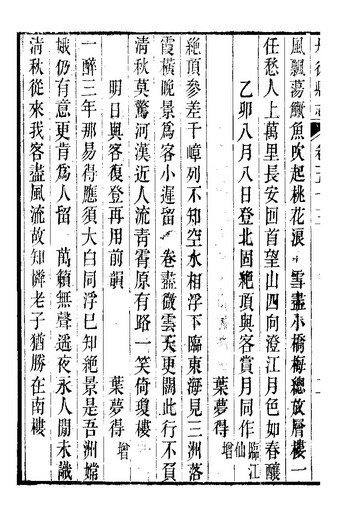 風飄蕩鱖魚吹起桃花浪　雪盡小橋梅總放層樓一
任愁人上萬里長安回首望山四向澄江月色如春釀
乙卯八月八日登北固絕頂與客賞月同作臨江仙
葉夢得增
絕頂參差千嶂列不知空水相浮下臨東海見三洲落
霞橫晚景爲客小遲留　卷盡微雲天更闊此行不負
清秋莫驚河漢近人流靑霄原有路一笑倚瓊樓
明日與客復登再用前韻　葉夢得增
一醉三年那易得應須大白同浮已知絕景是吾洲嫦
娥仍有意更肯爲人留　萬籟無聲遥夜永人閒未識
淸秋從來我客盡風流故知憐老子猶勝在南樓